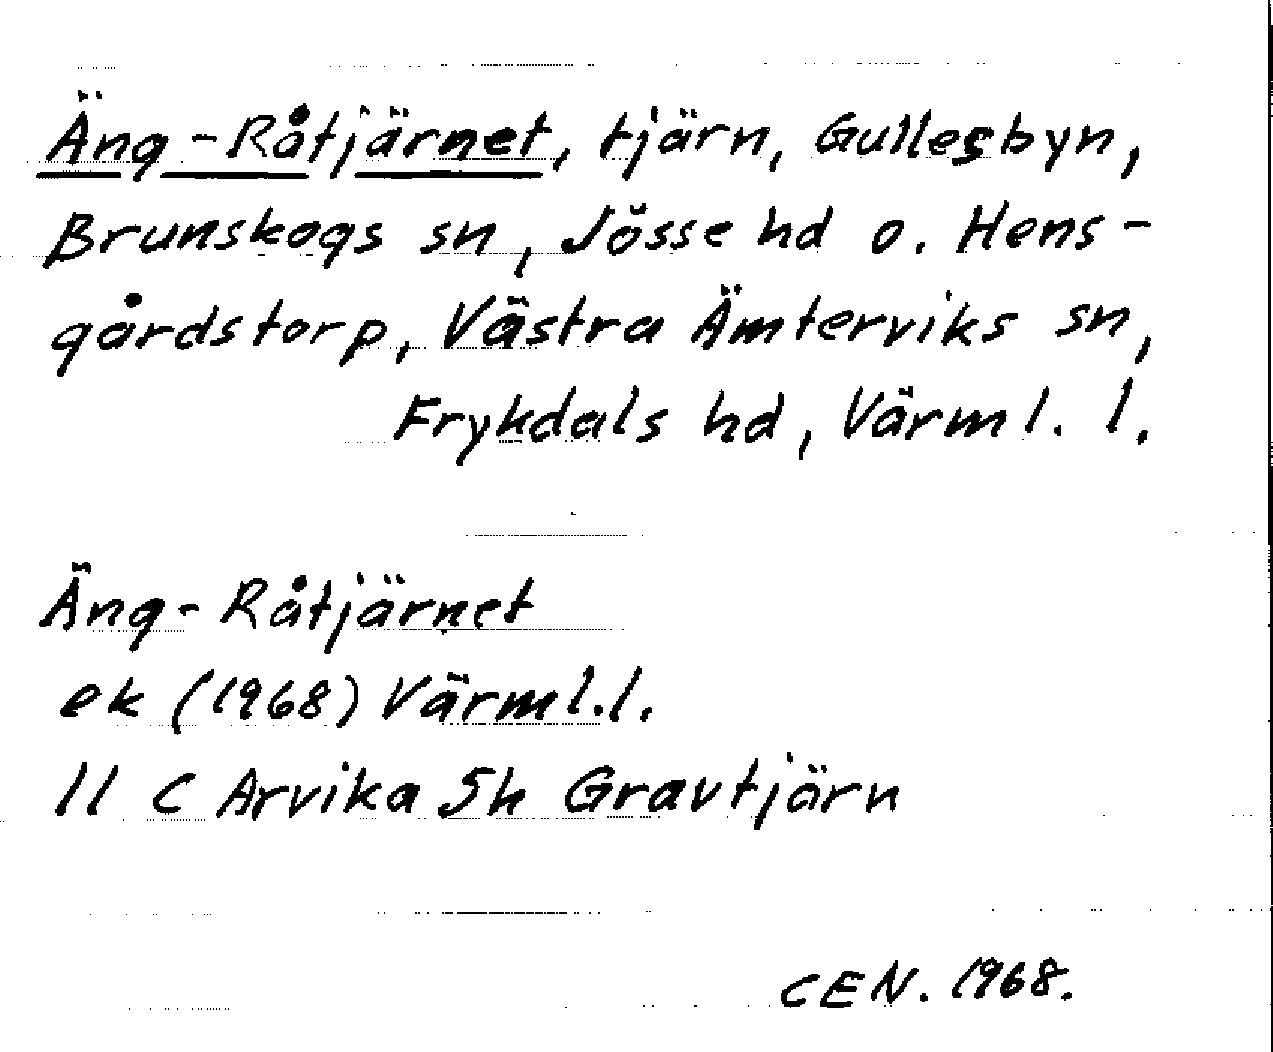 Äng-Råtjärnet, tjärn, Gullesbyn,
Brunskogs sn, Jösse hd o. Hens-
gårdstorp, Västra Ämterviks sn,
Frykdals hd, Värml. l.
Äng-Råtjärnet
ek (1968) Värml.l.
11 C Arvika 5h Gravtjärn
CEN. 1968.